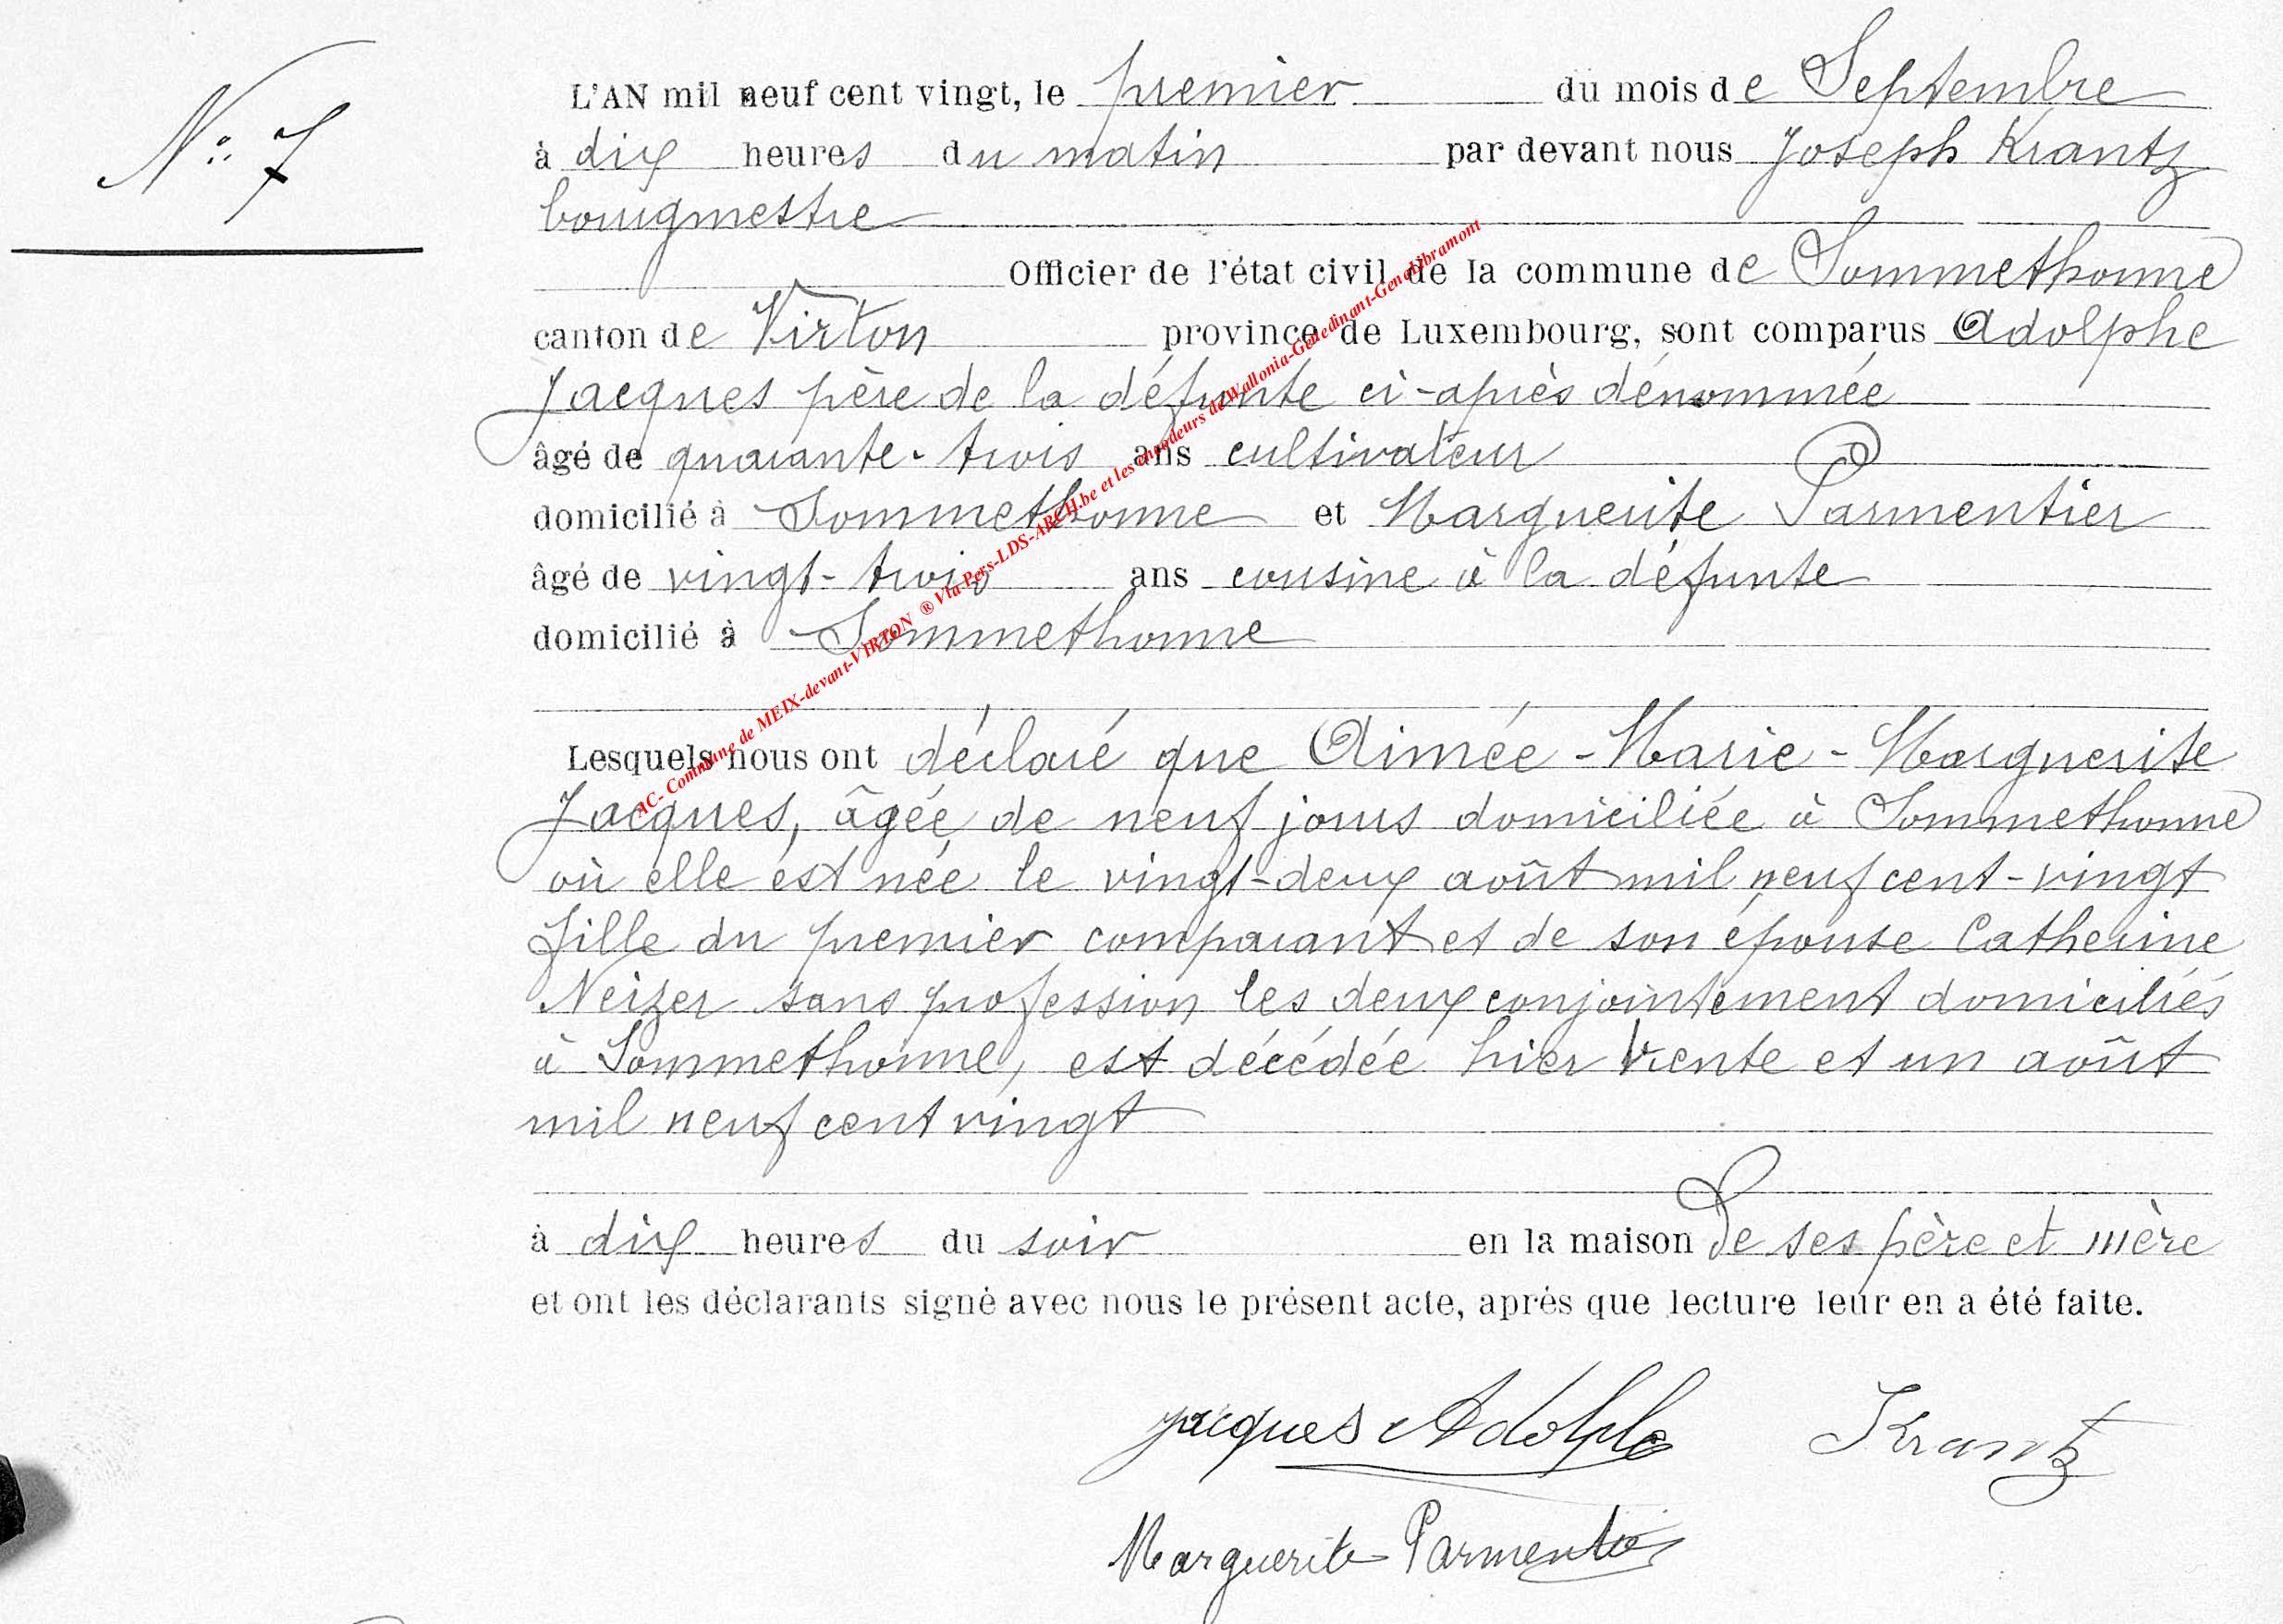 N° 7
L'AN mil neuf cent vingt, le premier du mois de Septembre
à dix heures du matin par devant nous Joseph Krantz
bourgmestre
Officier de l'état civil de la commune de Sommethonne
canton de Virton province de Luxembourg, sont comparus Adolphe
Jacques père de la défunte ci-après dénommée
âgé de quarante-trois ans cultivateur
domicilié à Sommethonne et Marguerite Parmentier
âgé de vingt-trois ans cousine à la défunte
domicilié à Sommethonne
Lesquels nous ont déclaré que Aimée-Marie-Marguerite
Jacques, âgée de neuf jours domiciliée à Sommethonne
où elle est née le vingt-deux août mil neuf cent-vingt
fille du premier comparant et de son épouse Catherine
Neizer sans profession les deux conjointement domiciliés
à Sommethonne, est décédée hier trente et un août
mil neuf cent vingt
à dix heures du soir en la maison de ses père et mère
et ont les déclarants signé avec nous le présent acte, après que lecture leur en a été faite.
Jacques Adolphe Krantz
Marguerite Parmentier
AC- Commune de MEIX-devant-VIRTON ® Via-Pers-LDS-ARCH.be et les encodeurs de Wallonia-Genedinant-GeneLibramont